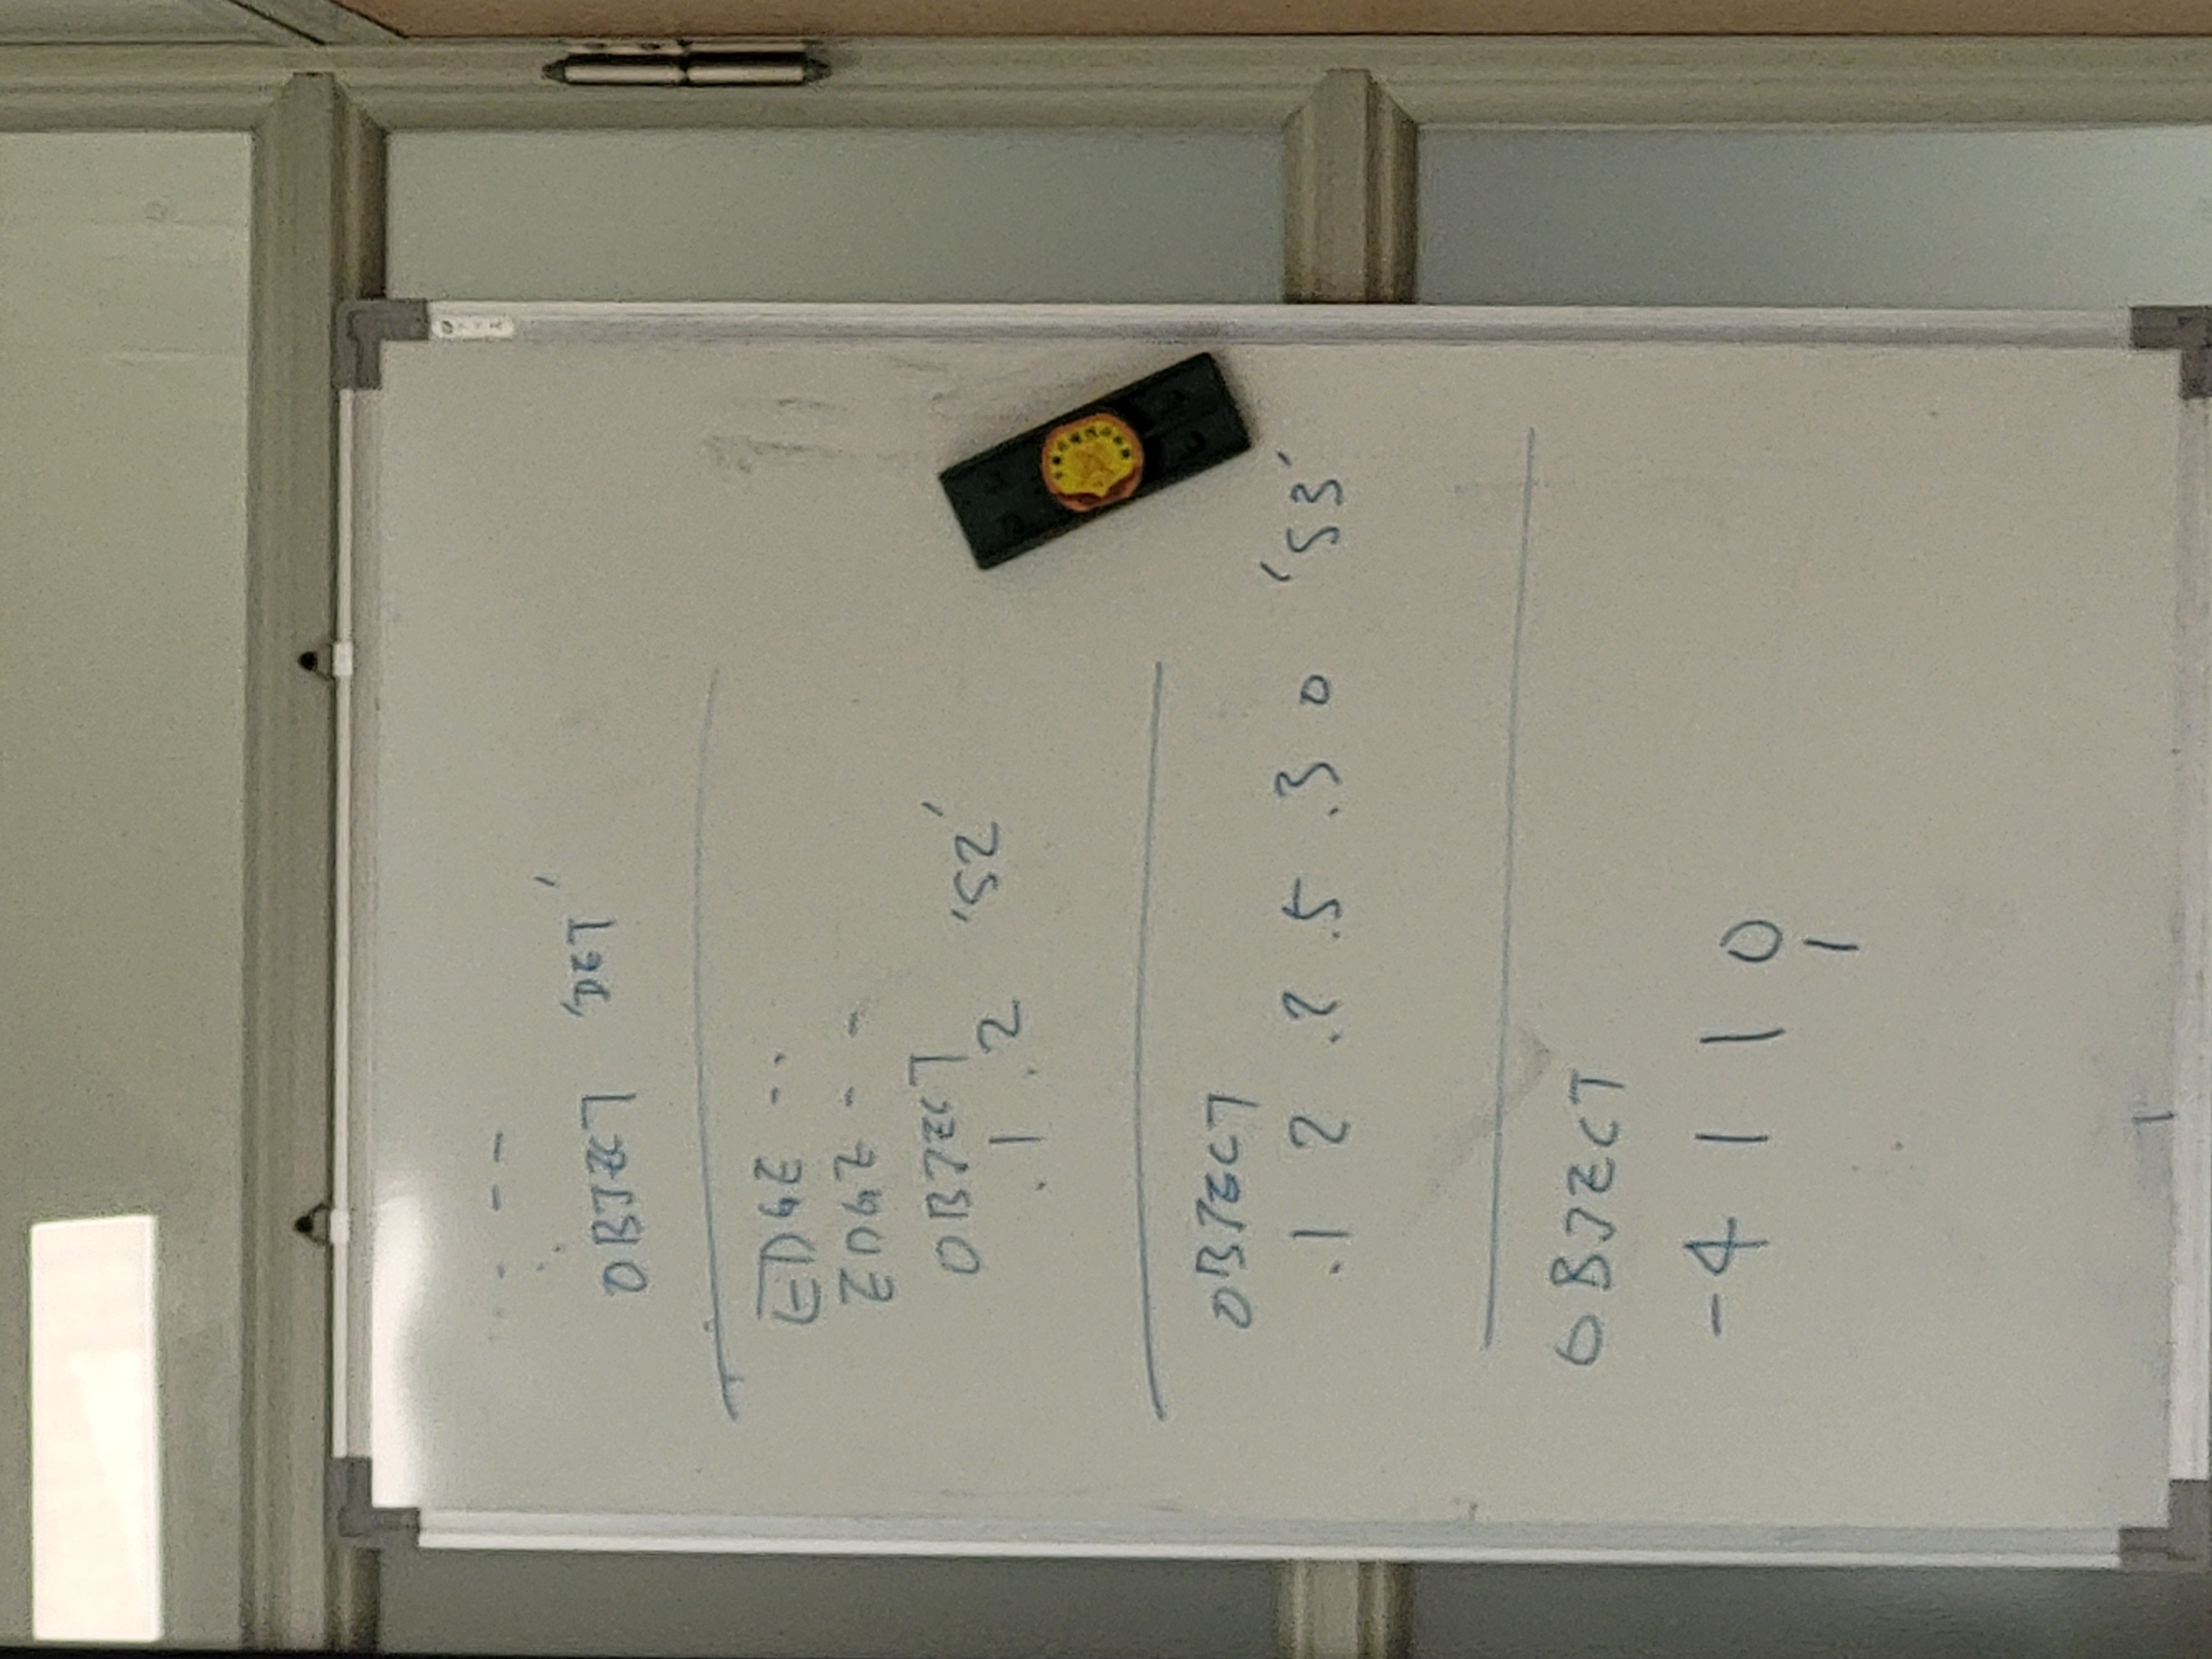 - --
OBJECT 'DET'
EDGE --
EDGE - -
OBJECT
.1 .2 'S2'
OBJECT
.1 2 .2 .5 .3 0 'S3'
OBJECT
-4 1 1 0
1